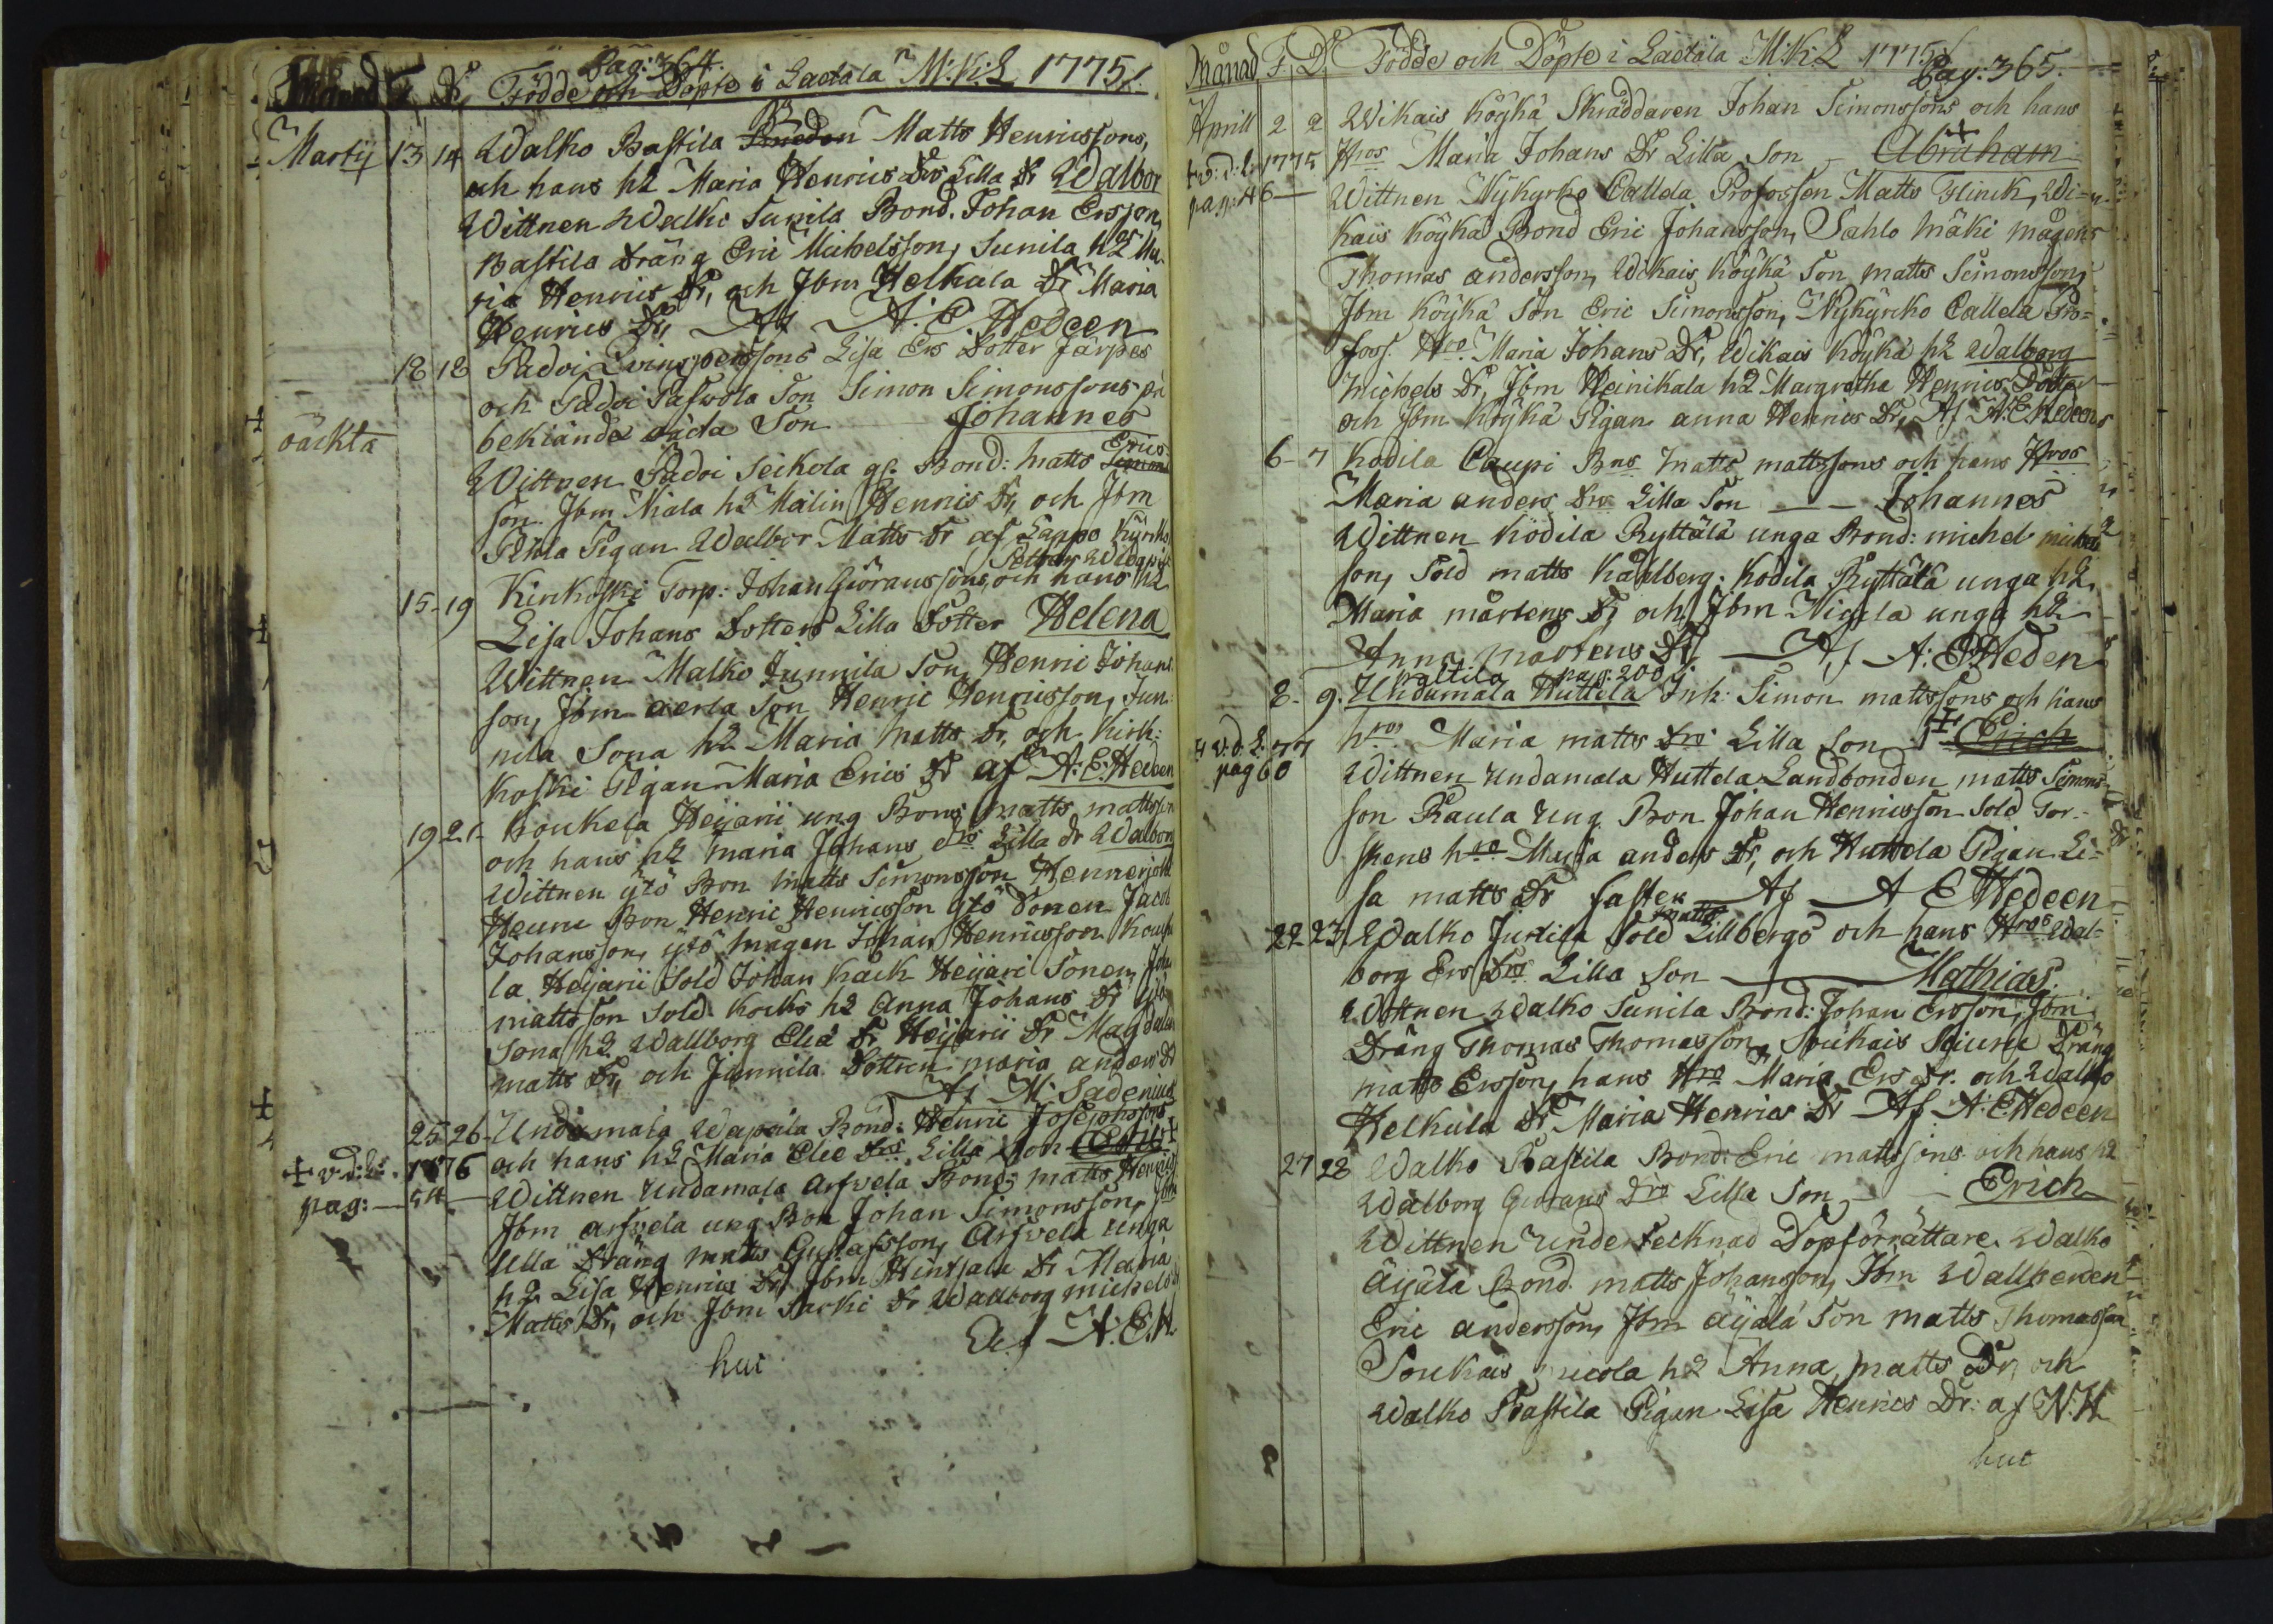 Pag: 364.
Månad F. D. Födde och Döpte i Laetala M:K:L 1775/.
Martij 13 14 Walko Bastila Matts Henricssons,
och hans h2 Maria Henrics Drs Lilla Dr Walbor
Wittnen Walko Sunila Bond. Johan Ersson,
Bastila Dräng Eric Michelsson, Sunila h2 Ma-
ria Henrics Dr, och Jbm Helkala Dr Maria
Henrics Dr, Af A. E. Hedeen
18 18 Sadvi Lisa Ers Dotter Järpes
och Sadvi Son Simon Simonssons
oäckta
bekiände oäcta Son Johannes
Wittnen Sadvi Seikola gl. Bond: Matts Erics
son Jbm Niala h2 Malin Henrics Dr, och Jbm
Pigan Walbor Matts Dr af Lappo
15-19 Kirkoski Torp: Johan Giöranssons, och hans h2
Lisa Johans Dotters Lilla Dotter Helena
Wittnen Malko Junnila Son, Henric Johans
son, Jbm aerla Son Henric Henricsson, Jun-
nila Sona h2 Maria Matts Dr, och Kirk:
koski Pigan Maria Erics Dr af A: E: Hedeen
19 21 Koukela Heijarii ung Bons matts mattsson
och hans h2 maria Johans drs Lilla dr Walborg
Wittnen ÿtö Bon matts Simonsson
Heunu Bon Henric Henricsson ÿtö Sonen Jacob
Johansson, ÿtö mågen Johan Henricsson Kouke
la Heijarii Sold Johan Kack Heijari Sonen, Joh
mattsson Sold. Kacks h2 Anna Johans Dr
Sona h2 Wallborg Eliæ Dr Heijarii Dr Magdalen
matts Dr, och Junnila Dottren maria anders dr
Af M: Sadenius
25 26 Undamala Wapaila Bond: Henric Josephssons
+ v.d.L. 1776 och hans h2 Maria Elie Drs Lilla Son
pag: 54 Wittnen Undamala Arfvela Bond: matts Henrics
Jbm arfvela ung Bon Johan Simonsson, Jbm
Ulla Dräng matts Gustafsson, Arfvela unga
h2 Lisa Henrics Dr, Jbm Hintsala Dr Maria
Matts Dr, och Jbm Sacki Dr Wallborg michels
Af A. E. H.
huc
Månad F. D. Födde och Döpte i Laetala M:K:L 1775/
Pag: 365.
Aprill 2 2 Wikais Köÿkä Skräddaren Johan Simonssons och hans
+ v. d. L. 1775 Hros Maria Johans Dr Lilla Son - Abraham
pag: 46 Wittnen Nÿkyrko Callela Profossen Matts Flinck, Wi-
kais Köÿkä Bond Eric Johansson, Sahlo mäki mågen
Thomas andersson, Wikais Köÿkä Son matts Simonsson,
Jbm Köÿkä Son Eric Simonsson, Nÿkyrcko Callela Pro-
foss. Hro Maria Johans Dr, Wikais Köÿkä h2 Walborg
michels Dr, Jbm Heinikala h2 Margretha Henrics Dotter
och Jbm Köÿkä Pigan anna Henrics Dr, Af A: E. Hedeen
6-7 Kodila Caupi Bns matts mattssons och hans Hros
Maria anders Drs Lilla Son - Johannes
Wittnen Kodila Ryttälä unga Bond: michel michels
son, Sold matts Kahlberg: Kodila Ryttälä unga h2
Maria mårtens Dr och Jbm Nigela unga h2
Anna mårtens Dr, Af A: E Heden
Paltila pag: 200
8-9. Undamala Huttela Inh: Simon mattssons och hans
+ v. d. L. 77 hros Maria matts Drs Lilla Son Erich
pag 60 Wittnen Undamala Huttela Landbonden matts Simons
son Raula Ung Bon Johan Henricsson Sold Tor-
skens hro Maria anders Dr, och Huttela Pigan Li-
sa matts Dr faster Af A E Hedeen
matts
22 23 Walko Jurtila Sold Lillbergs och hans Hros Wal-
borg Ers Drs Lilla Son Mathias.
Wittnen Walko Sunila Bond: Johan Ersson, Jbm
Dräng Thomas Thomasson, Soukais Dräng
matts Ersson, hans Hro Maria Ers dr. och Walko
Helkula Dr Maria Henrics Dr Af A: E Hedeen
27 28 Walko Bastila Bond: Eric mattssons och hans h2
Walborg Giörans Drs Lilla Son - Erich
Wittnen Undertecknad Dopförrättare. Walko
Äijälä Bond. matts Johansson, Jbm Wallpenden
Eric andersson, Jbm Äijälä Son matts Thomasson
Soukais nicola h2 Anna matts Dr, och
Walko Prastila Pigan Lisa Henrics Dr: af N. H.
huc